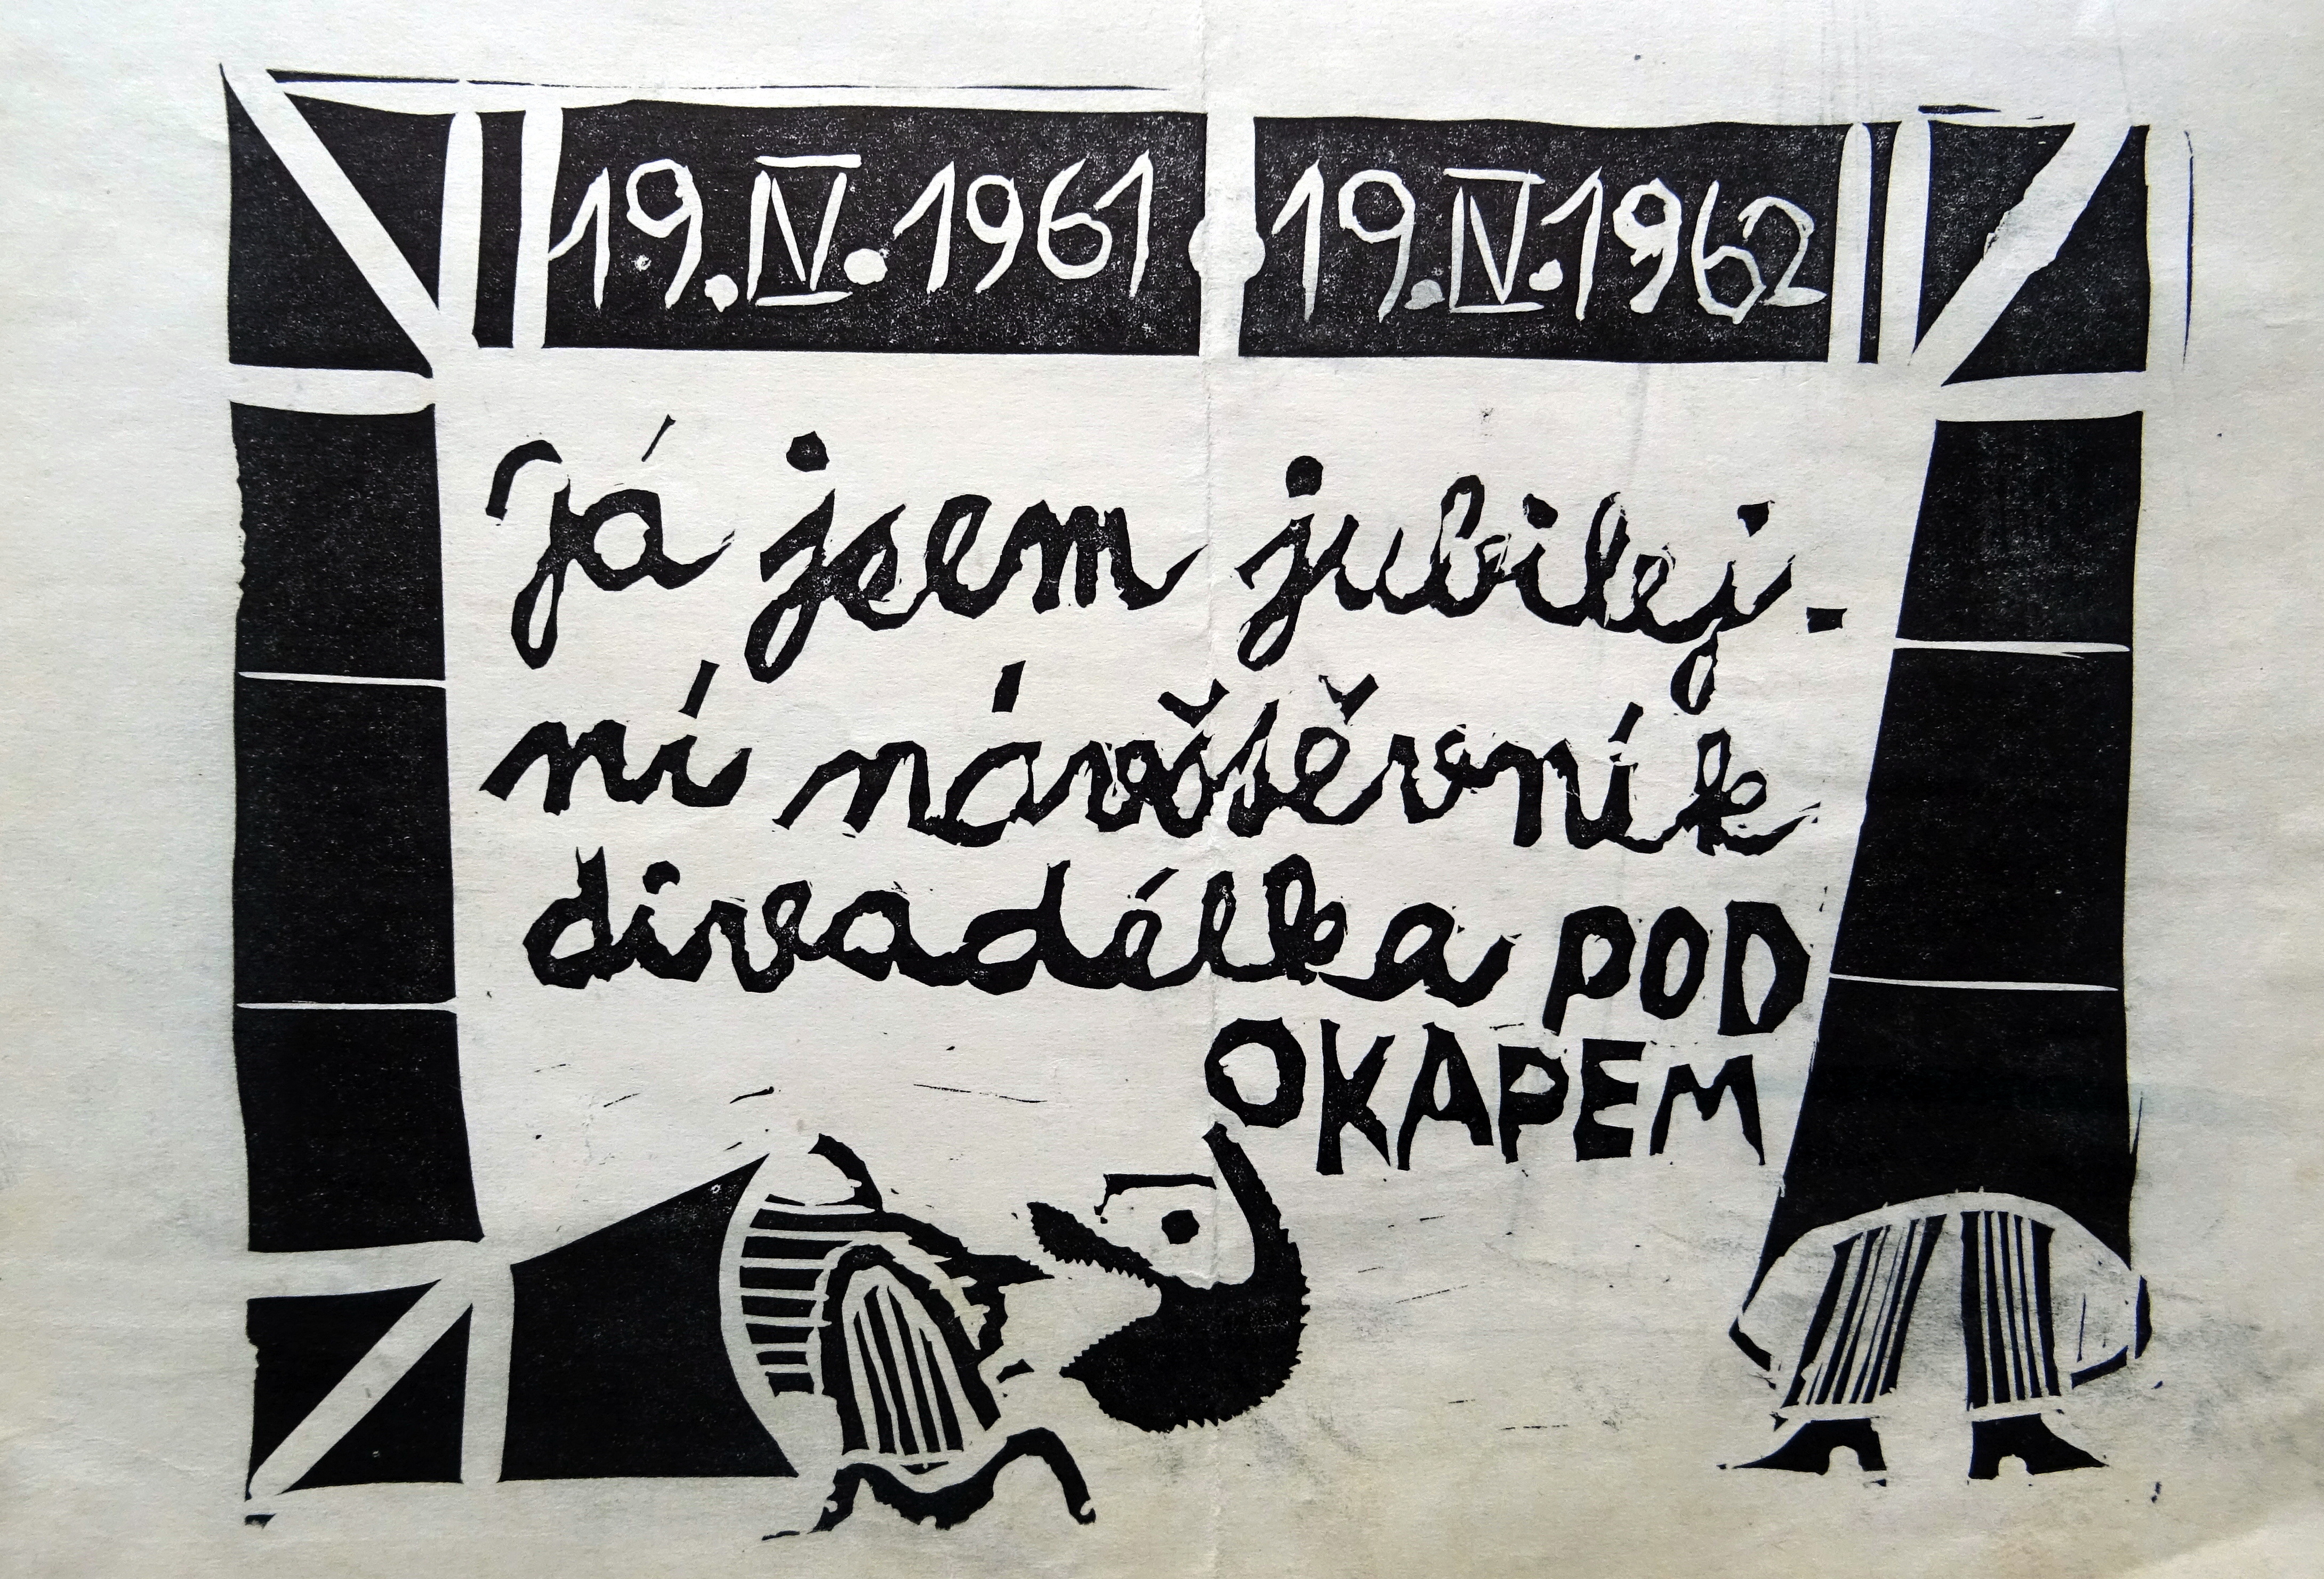 19.IV.1961 19.IV.1962
Já jsem jubilej-
ní návštěvník
divadélka POD
OKAPEM